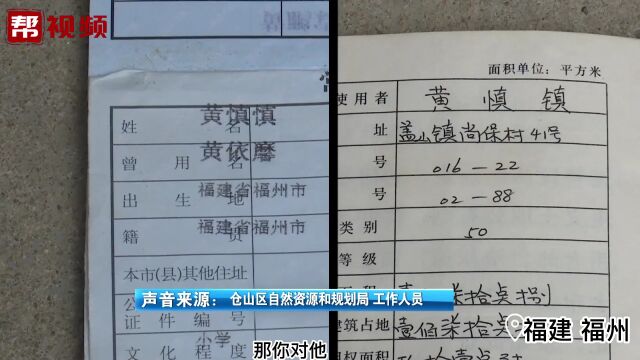 帮视频
姓名
黄慎慎
曾用名
黄依磨
出生地
福建省福州市
籍贯
福建省福州市
本市(县)其他住址
证件编号
文化程度
小学
面积单位:平方米
使用者 黄慎镇
址 盖山镇尚保村41号
号 016—22
号 02—88
类别 50
等级
建筑占地
声音来源: 仓山区自然资源和规划局 工作人员
福建 福州
那你对他